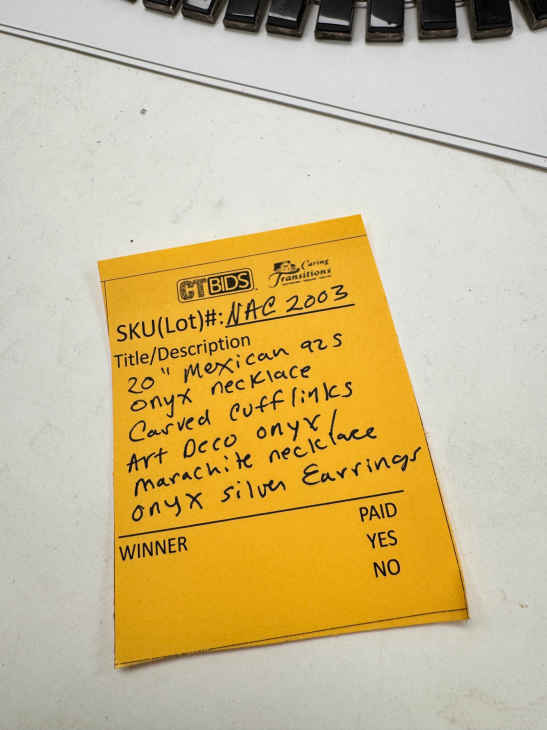 CTBIDS
Caring
Transitions
SKU(Lot)#: NAC 2003
Title/Description
20" Mexican 925
onyx necklace
Carved cufflinks
Art Deco onyx/
marachite necklace
onyx silver Earrings
WINNER
PAID
YES
NO